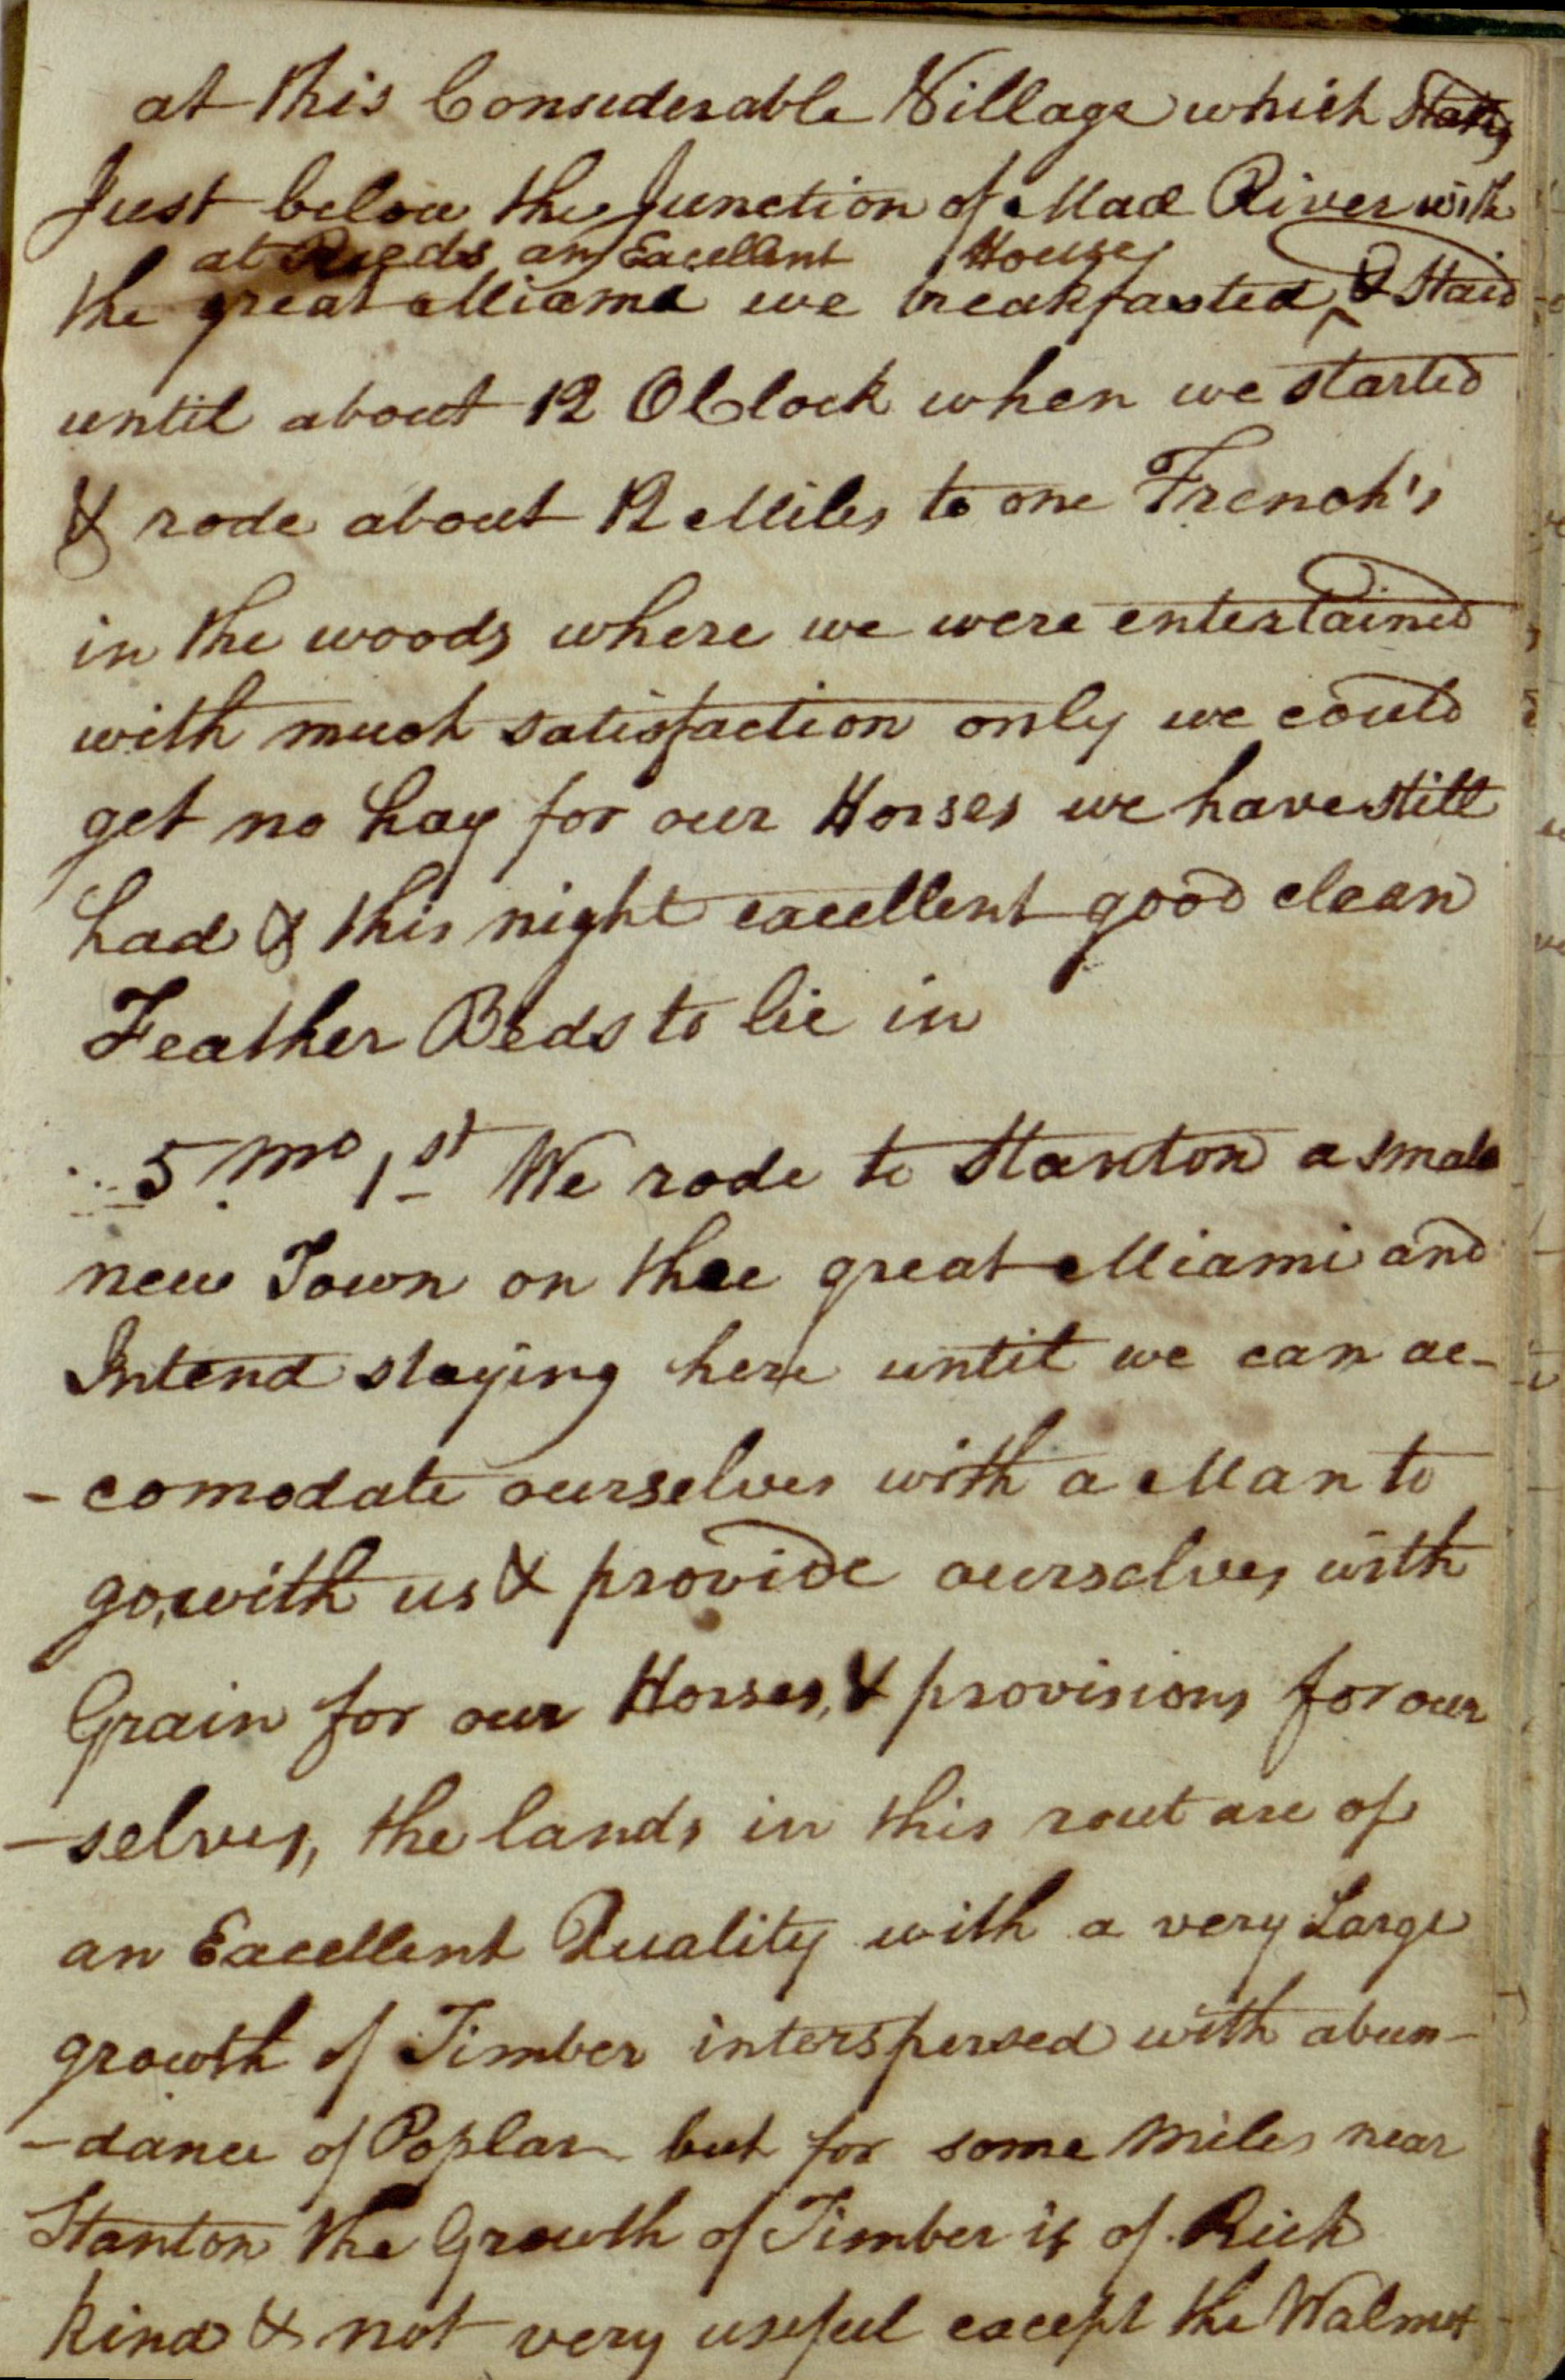 at this Considerable Village which
Just below the Junction of Mad River with
at Reeds an Excellent House
the great Miama we breakfasted & Staid
until about 12 OClock when we started
& rode about 12 Miles to one French's
in the woods where we were entertained
with much satisfaction only we could
get no hay for our Horses we have still
had & this night excellent good clean
Feather Beds to lie in
5 mo 1st We rode to Stanton a small
new Town on the great Miami and
Intend staying here until we can ac-
-comodate ourselves with a Man to
go, with us & provide ourselves with
Grain for our Horses, & provisions for our
-selves, the lands in this rout are of
an Excellent Quality with a very Large
growth of Timber interspersed with abun-
-dance of Poplar but for some Miles near
Stanton the Growth of Timber is of Rich
kind & not very useful except the Walnut